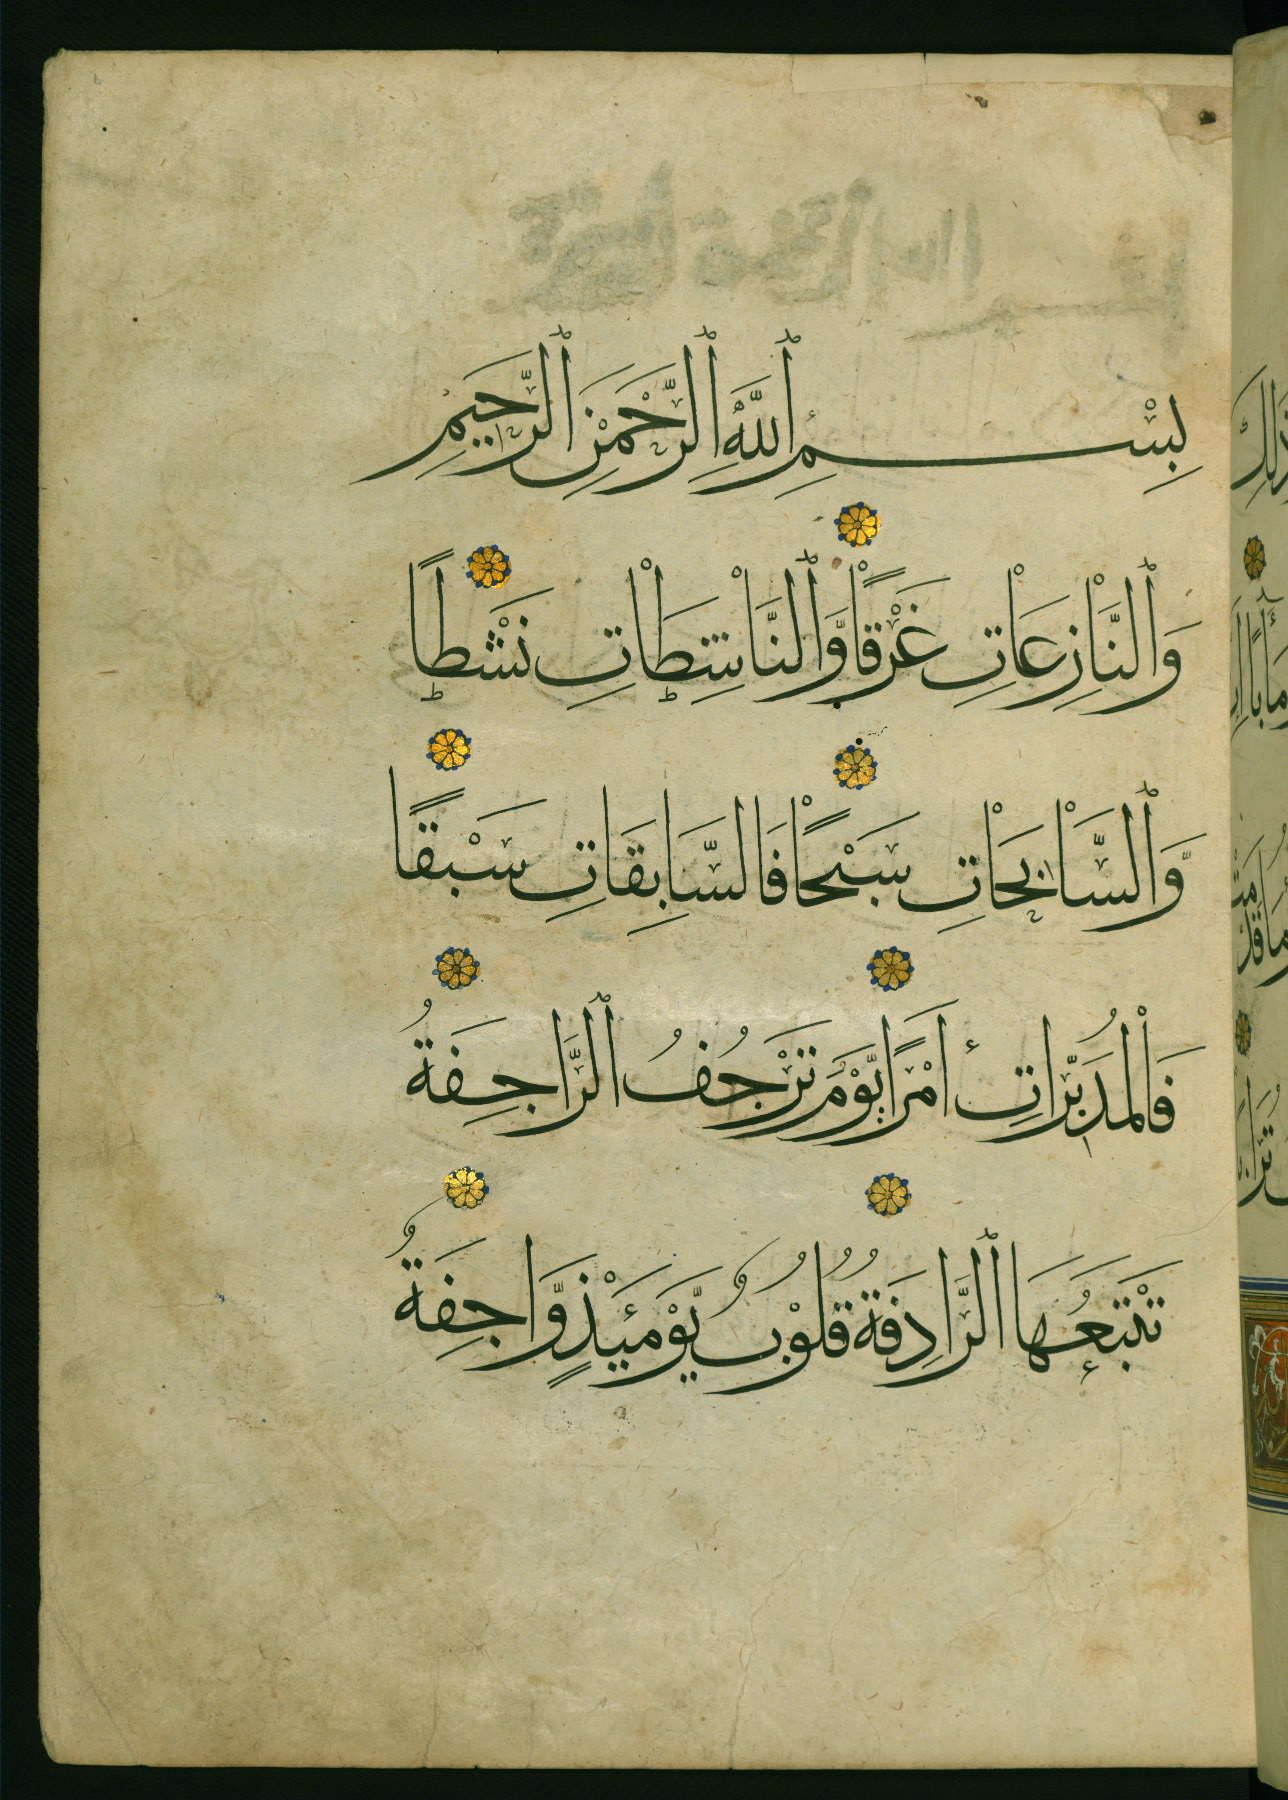 بِسْمِ ٱللَّهِ ٱلرَّحْمَنِ ٱلرَّحِيمِ
وَٱلنَّازِعَاتِ غَرْقًا وَّٱلنَّاشِطَاتِ نَشْطًا
وَّٱلسَّابِحَاتِ سَبْحًا فَالسَّابِقَاتِ سَبْقًا
فَالْمُدَبِّرَاتِ أَمْرًا يَّوْمَ تَرْجُفُ ٱلرَّاجِفَةُ
تَتْبَعُهَا ٱلرَّادِفَةُ قُلُوْبٌ يَّوْمَئِذٍ وَّاجِفَةٌ